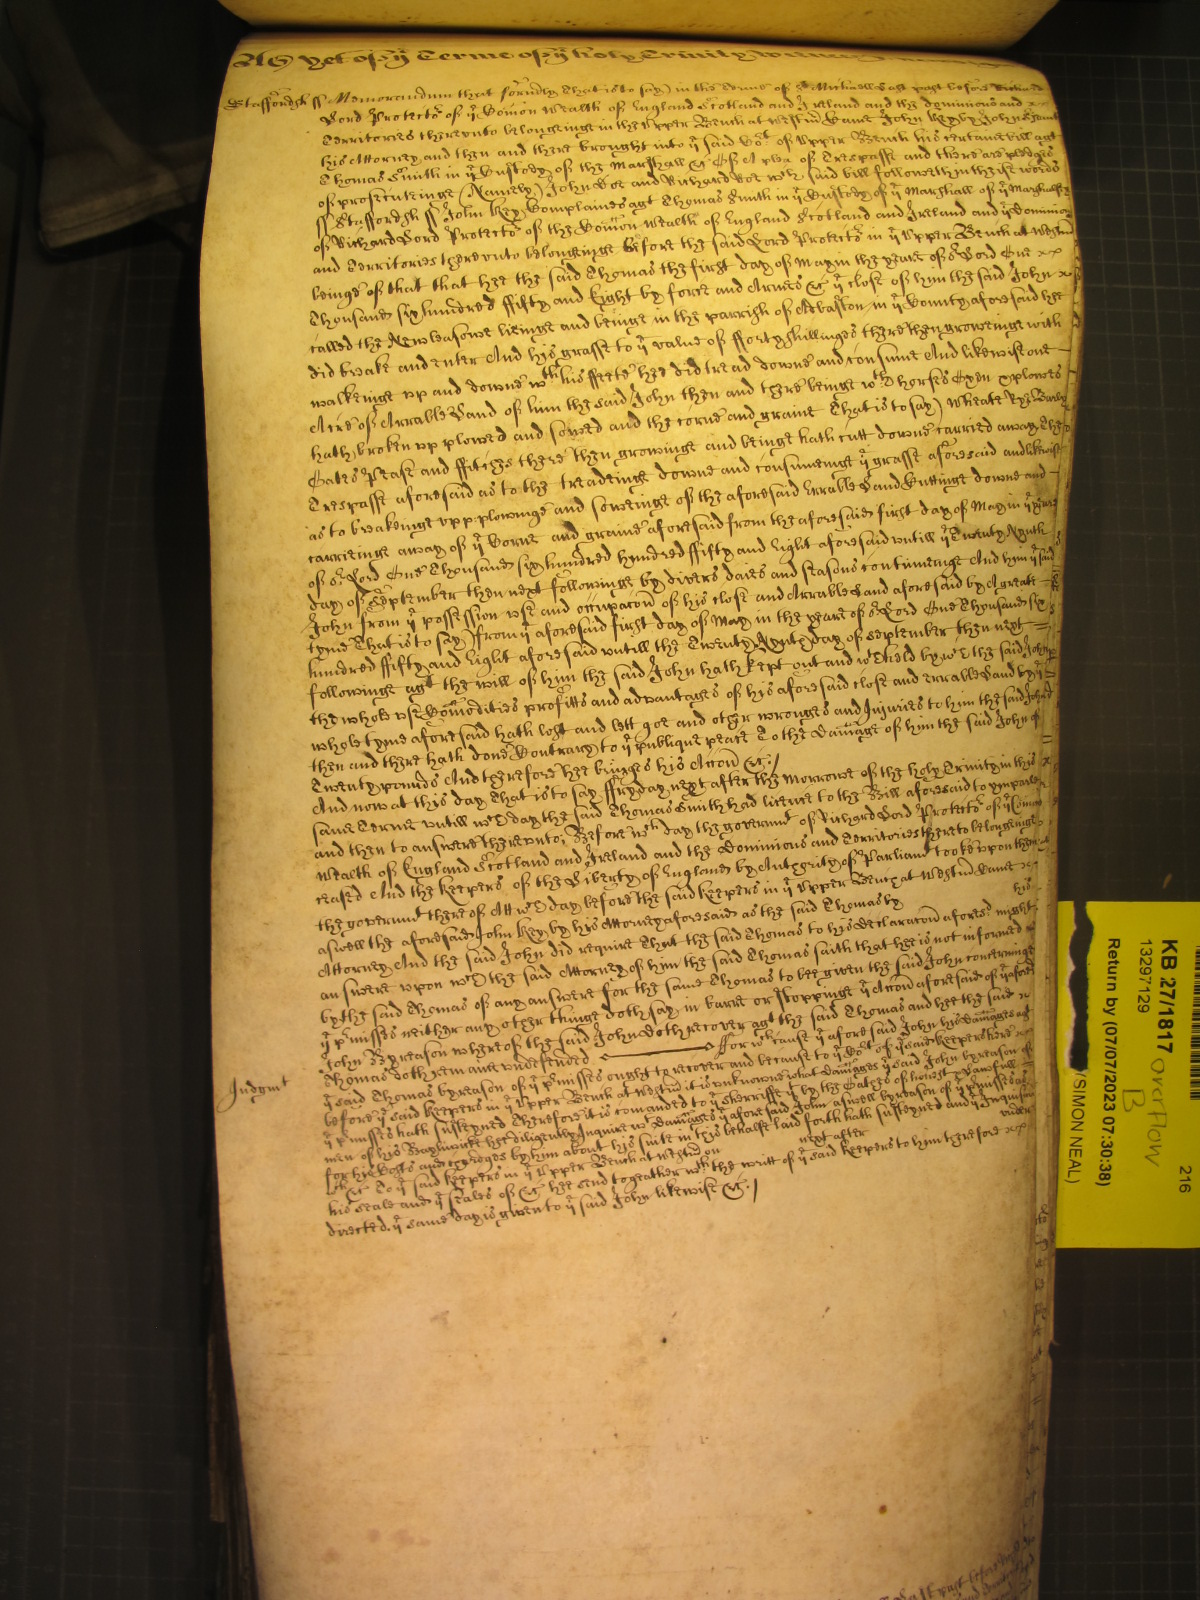 As yet of ye Terme of ye holy Trinity
Staffordsh ss Memorandum that formerly (that is to say) in the Terme of St Michaell last past before Richard
Lord Protector of ye Com̄on Wealth of England Scotland and Ireland and the dominions and xx
Territories thereunto belonginge in the Upper Bench at Westm̄ Came John Key by John
his Attorney and then and there brought into ye said Cot of Upper Bench his certaine bill agt
Thomas Smith in ye Custody of the Marshall &c Of A plea of Trespasse and there are pledges
of prosecutinge (Namely) John Doe and Richard Roe wch said bill followeth in these words
ss Staffordsh ss John Key Complaines agt Thomas Smith in ye Custody of ye Marshall of ye Marshalsey
of Richard Lord Protector of the Com̄on Wealth of England Scotland and Ireland and ye Dominions
and Territories thereunto belonginge before the said Lord Protector in ye Upper Bench at Westm̄
beinge of that that hee the said Thomas the first day of May in the yeare of or Lord One xx
Thousand six hundred ffifty and Eight by force and Armes &c ye close of him the said John x
called the New leasowe lieinge and beinge in the parrish of in ye County aforesaid hee
did breake and enter And his grasse to ye value of fforty shillinges there then groweinge with
walkeinge up and downe wth his ffeete hee did tread downe and consume And likewise one
Acre of Arrable Land of him the said John then and there beinge wth horses Oxen x plowes
hath broken up plowed and sowed and the corne and graine (that is to say) Wheate Rye Barly
Oates Pease and ffitches there then growinge and beinge hath cutt downe carried away The
Trespasse aforesaid as to the treadinge downe and consumeinge ye grasse aforesaid and likewise
as to breakinge upp plowinge and soweinge of the aforesaid Arrable Land Cuttinge downe and
carrieinge away of ye Corne and graine aforesaid from the aforesaid first day of May in ye yeare
of or Lord One Thousand six hundred hundred ffifty and Eight aforesaid untill ye Twenty Nynth
day of September then next followinge by divers daies and seasons continueinge And him ye said
John from ye possession use and occupacon of his close and Arrable Land aforesaid by A greate
tyme That is to say) from ye aforesaid first day of May in the yeare of or Lord One Thousand six
hundred ffifty and Eight aforesaid untill the Twenty Nynth day of September then next
followinge agt the will of him the said John hath kept out and wthheld by wch the said John
the whole use Com̄odities profitts and advantages of his aforesaid close and arrable Land by ye
whole tyme aforesaid hath lost and lett goe and other wronges and Injuries to him the said John
then and there hath done Contrary to ye publique peace To the Dam̄age of him the said John of
Twenty pounds And therefore hee bringes his Accon &c./
And now at this day That is to say ffryday next after the Morrowe of the holy Trinity in this
same Terme untill wch day the said Thomas Smith had licence to the Bill aforesaid to imparle
and then to answere thereunto; Before wch day the governmt of Richard Lord Protector of ye Com̄on
Wealth of England Scotland and Ireland and the Dominions and Territories thereto belonginge
ceased And the keepers of the Liberty of England by Authority of Parliamt tooke upon them
the governmt thereof Att wch day before the said keepers in ye Upper Bench at Westm̄ Came
aswell the aforesaid John Key by his Attorney aforesaid as the said Thomas by his
Attorney And the said John did require That the said Thomas to his declaracon aforesd might
answere upon wch the said Attorney of him the said Thomas saith that hee is not informed
by the said Thomas of any answere for the same Thomas to bee given the said John concerninge
ye pr̄misses neither any other thinge doth say in barre or stoppinge ye Accon aforesaid of ye aforesd
John By reason whereof the said John doth recover agt the said Thomas and hee the said
Thomas doth remaine undefended ffor wch cause ye aforesaid John his dam̄ages agt
Judgmt
ye said Thomas by reason of ye pr̄misses ought to recover and because to ye Cot of ye said keepers here
before ye said keepers in ye Upper Bench at Westm̄ it is unknowne what Dam̄ages ye said John by reason of
ye pr̄misses hath susteyned Therefore it is comanded to ye Sherriffe yt by the Oathes of honest & lawfull
men of his Baylywicke hee diligently Inquire wt Dam̄ages ye aforesaid John aswell by reason of ye pr̄misses as
for his Costs and chardges by him about his suite in this behalfe laid forth hath susteyned and ye Inquisicon
&c To ye said keepers in ye Upper Bench at Westm̄ on next after under
his seale and ye seales of &c hee send togeather wth the writt of ye said keepers to him therefore xx
directed. ye same day is given to ye said John likewise &c./
KB 27/1817 overflow
13297129 B
Return by (07/07/2023 07:30:38)
(SIMON NEAL)
216